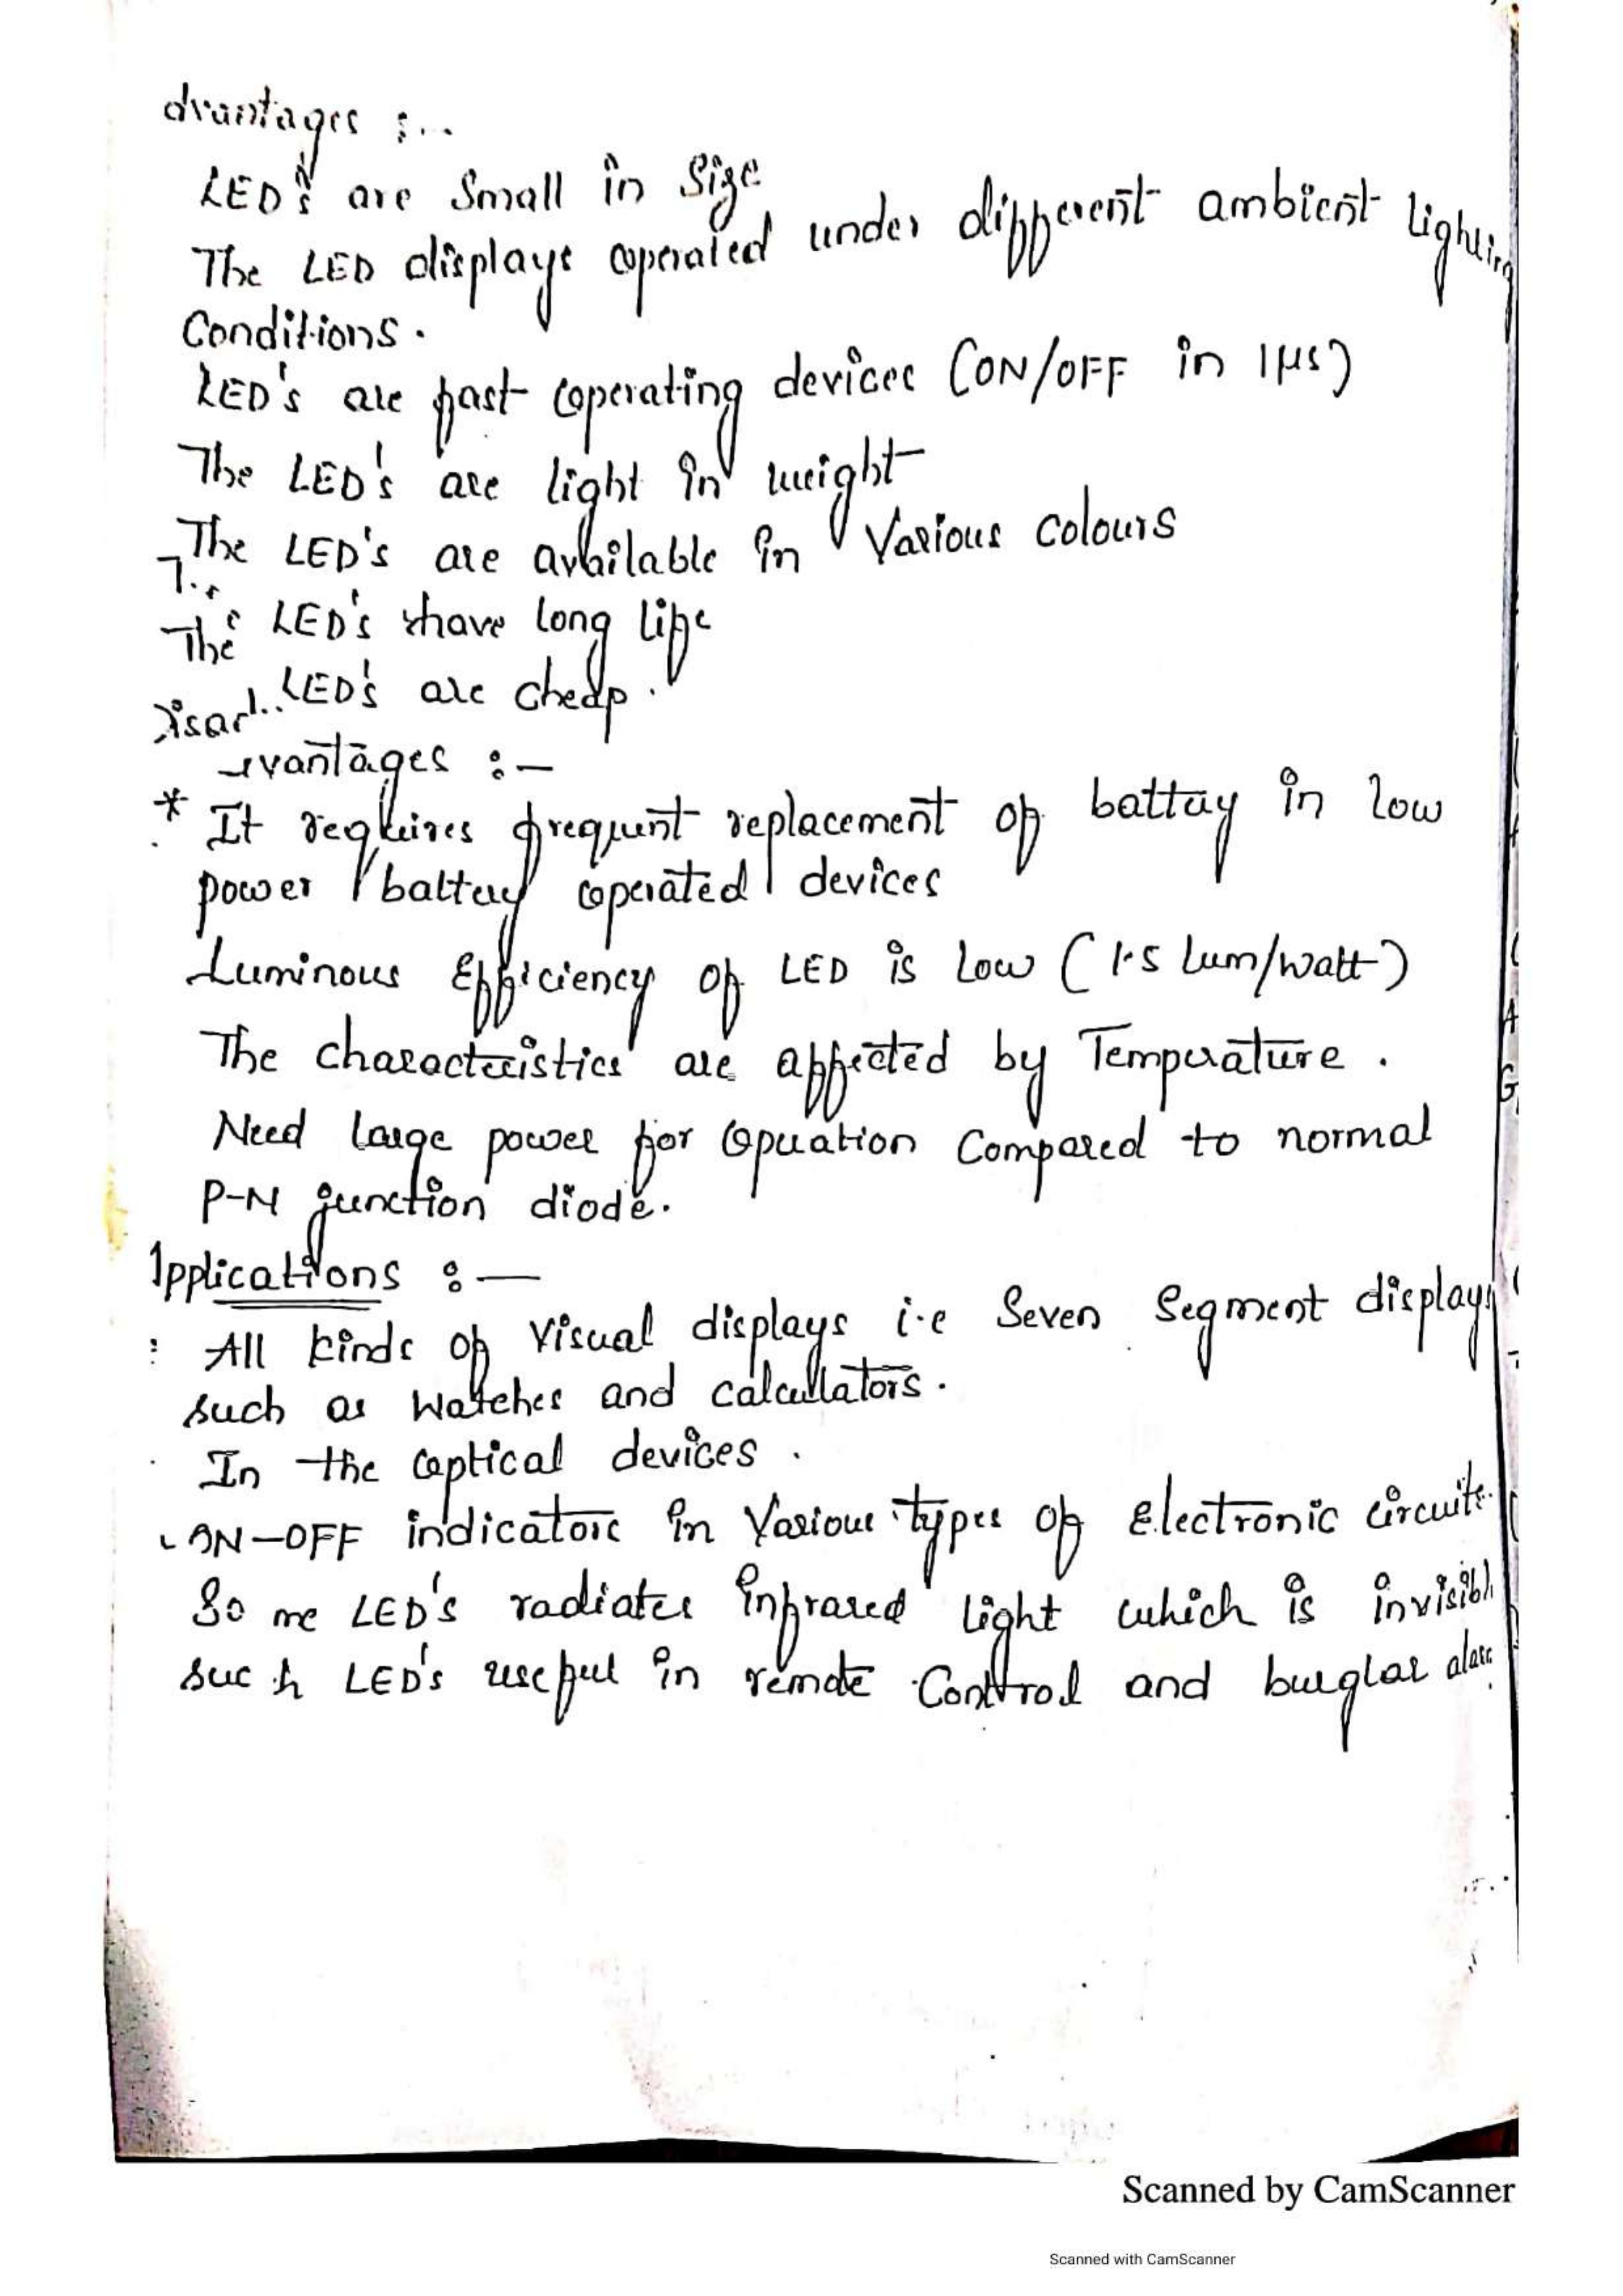 dvantages :-
LED's are small in size
The LED displays operated under different ambient lighting
Conditions.
LED's are fast operating devices (ON/OFF in 1μs)
The LED's are light in weight
The LED's are available in Various colours
The LED's have long life
LED's are cheap.
Disad
vantages :-
* It requires frequent replacement of battery in low
power battery operated devices
Luminous Efficiency of LED is Low (1.5 lum/watt)
The characteristics are affected by Temperature.
Need large power for Operation Compared to normal
P-N junction diode.
Applications :-
: All kinds of visual displays i.e Seven Segment displays
such as Watches and calculators.
In the optical devices.
ON-OFF indicators in Various types of Electronic circuits
Some LED's radiates infrared light which is invisibl
such LED's useful in remote Control and burglar
Scanned by CamScanner
Scanned with CamScanner